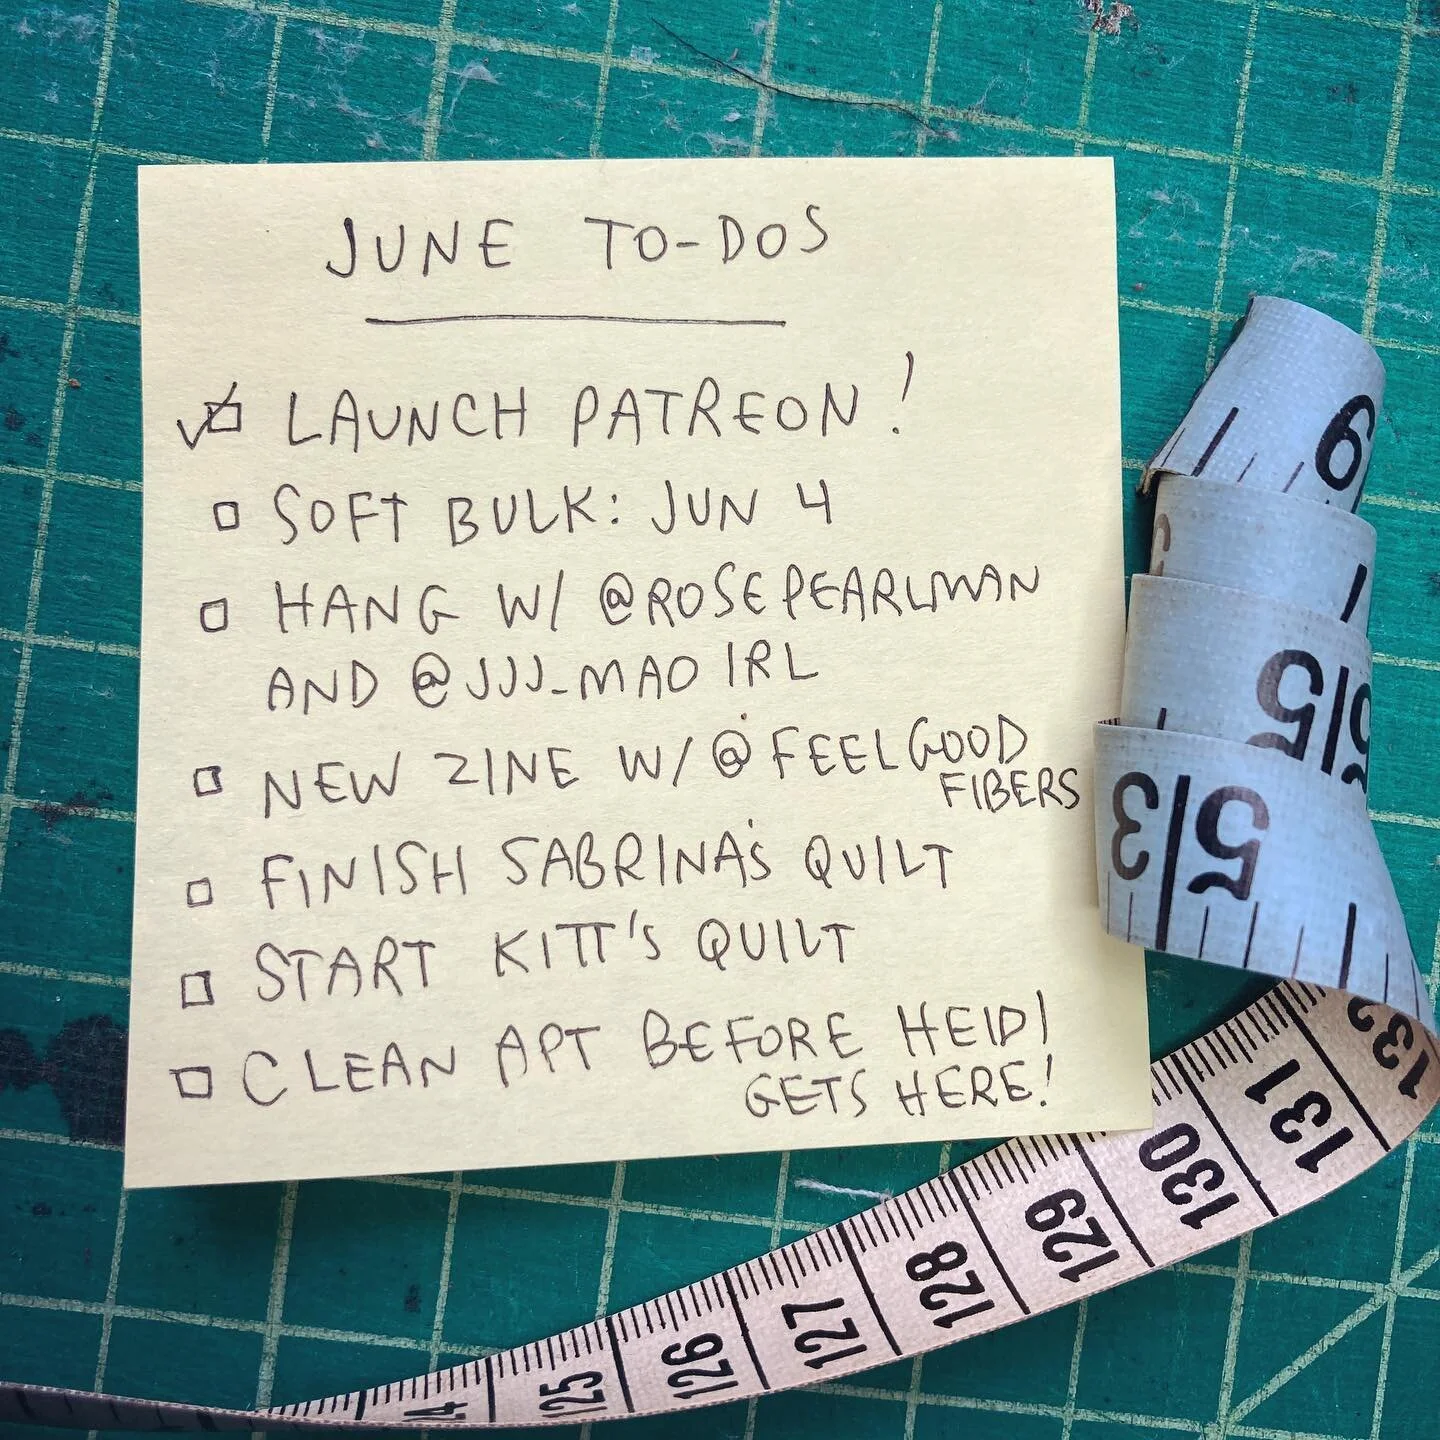 JUNE TO-DOS
LAUNCH PATREON!
SOFT BULK: JUN 4
HANG W/ @ROSEPEARLMAN
AND @JJJ_MAO IRL
NEW ZINE W/ @FEELGOOD
FIBERS
FINISH SABRINA'S QUILT
START KITT'S QUILT
CLEAN APT BEFORE HEIDI
GETS HERE!
9
5
5
3 5
125 126 127 128 129 130 131 132